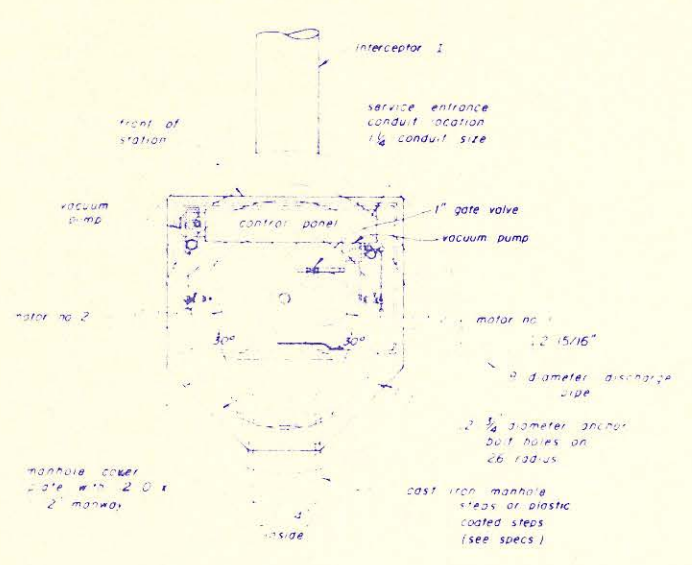 interceptor I
front of
station
service entrance
conduit location
1¼ conduit size
vacuum
pump
control panel
1" gate valve
vacuum pump
motor no 2
30°
30°
motor no
2 15/16"
diameter discharge
pipe
¾ diameter anchor
bolt holes on
26 radius
manhole cover
plate with
manway
cast iron manhole
steps or plastic
coated steps
(see specs)
4
inside